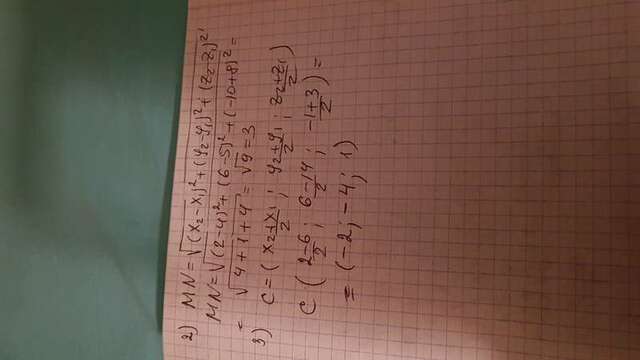 2) MN = √(x₂-x₁)² + (y₂-y₁)² + (z₂-z₁)²
MN = √(2-4)² + (6-5)² + (-10+8)² =
= √4+1+4 = √9 = 3
3) C = (x₂+x₁/2 ; y₂+y₁/2 ; z₂+z₁/2)
C (2-6/2 ; 6-14/2 ; -1+3/2) =
= (-2; -4; 1)